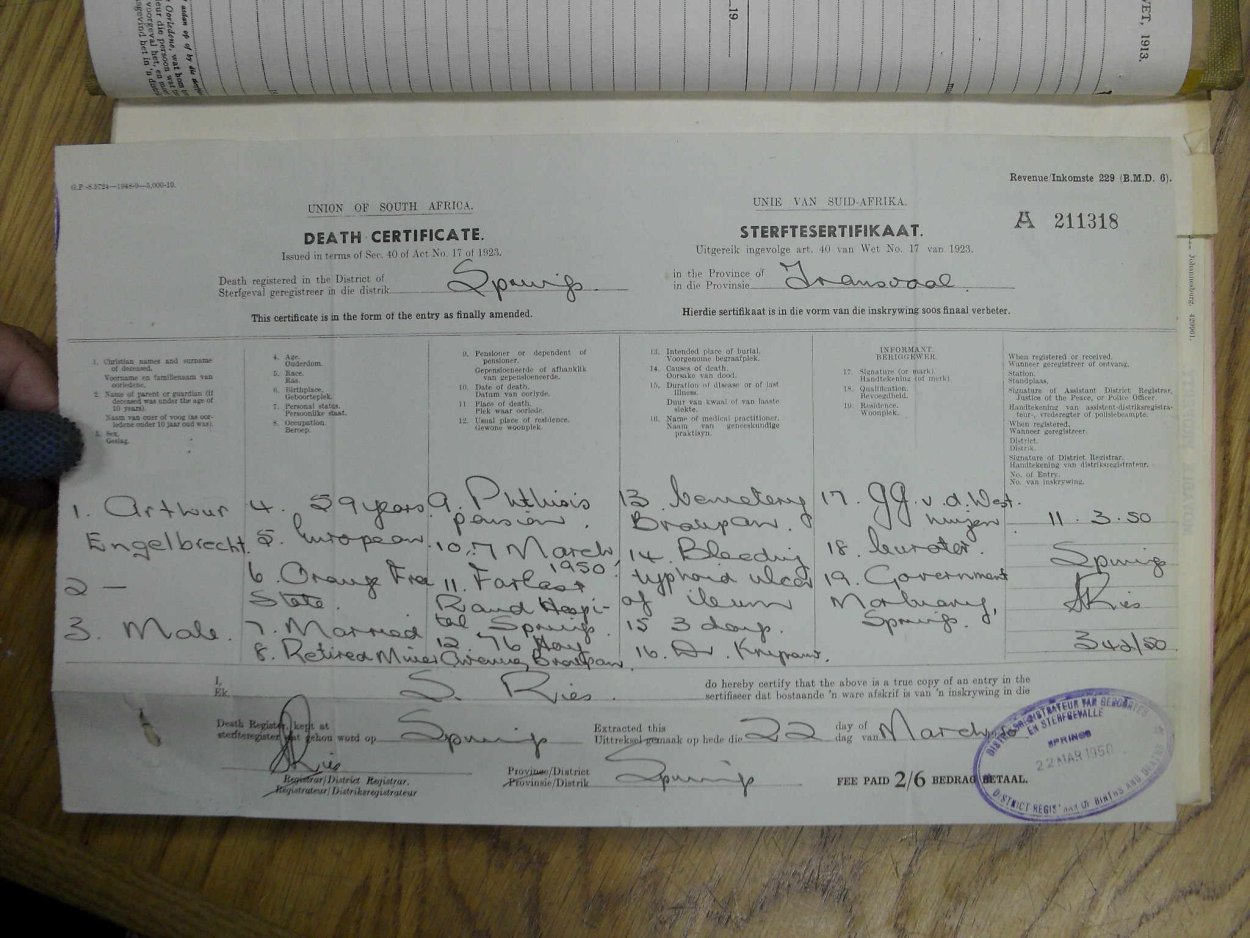 19
WET, 1913.
G.P.-S.3724—1948-9—5,000-10.
Revenue/Inkomste 229 (B.M.D. 6).
UNION OF SOUTH AFRICA.
UNIE VAN SUID-AFRIKA.
A 211318
DEATH CERTIFICATE.
STERFTESERTIFIKAAT.
Issued in terms of Sec. 40 of Act No. 17 of 1923.
Uitgereik ingevolge art. 40 van Wet No. 17 van 1923.
Death registered in the District of
Sterfgeval geregistreer in die distrik
Springs
in the Province of
in die Provinsie
Transvaal.
This certificate is in the form of the entry as finally amended.
Hierdie sertifikaat is in die vorm van die inskrywing soos finaal verbeter.
1. Christian names and surname
of deceased.
Voorname en familienaam van
oorledene.
2. Name of parent or guardian (if
deceased was under the age of
10 years).
Naam van ouer of voog (as oor-
ledene onder 10 jaar oud was).
3. Sex.
Geslag.
4. Age.
Ouderdom.
5. Race.
Ras.
6. Birthplace.
Geboorteplek.
7. Personal status.
Persoonlike staat.
8. Occupation.
Beroep.
9. Pensioner or dependent of
pensioner.
Gepensioeneerde of afhanklik
van gepensioeneerde.
10. Date of death.
Datum van oorlyde.
11. Place of death.
Plek waar oorlede.
12. Usual place of residence.
Gewone woonplek.
13. Intended place of burial.
Voorgenome begraafplek.
14. Causes of death.
Oorsake van dood.
15. Duration of disease or of last
illness.
Duur van kwaal of van laaste
siekte.
16. Name of medical practitioner.
Naam van geneeskundige
praktisyn.
INFORMANT
BERIGGEWER.
17. Signature (or mark).
Handtekening (of merk).
18. Qualification.
Bevoegdheid.
19. Residence.
Woonplek.
When registered or received.
Wanneer geregistreer of ontvang.
Station.
Standplaas.
Signature of Assistant District Registrar,
Justice of the Peace, or Police Officer.
Handtekening van assistent-distriksregistra-
teur, vrederegter of polisiebeampte.
When registered.
Wanneer geregistreer.
District.
Distrik.
Signature of District Registrar.
Handtekening van distriksregistrateur.
No. of Entry.
No. van inskrywing.
1. Arthur
Engelbrecht.
2 —
3. Male.
4. 59 years
5. European
6. Orange Free
State.
7. Married
8. Retired Miner
9. Phthisis
pension.
10. 7 March
1950
11. Far East
Rand Hospi-
tal Springs.
12 76 Hoy
Avenue, Brakpan.
13. Cemetery
Brakpan.
14. Bleeding
typhoid ulcer
of ileum
15 3 days.
16. Dr.
17. GG. v. d. West-
huizen
18. Curator.
19. Government
Mortuary,
Springs.
11. 3. 50
Springs
SRies
342/50
I,
Ek.
S. Ries.
do hereby certify that the above is a true copy of an entry in the
sertifiseer dat bostaande 'n ware afskrif is van 'n inskrywing in die
Death Register, kept at
sterfteregister wat gehou word op
Springs
Extracted this
Uittreksel gemaak op hede die
22
day of
dag van
March
SRies
Registrar/District Registrar.
Registrateur/Distriksregistrateur
Province/District
Provinsie/Distrik
Springs
FEE PAID 2/6 BEDRAG BETAAL.
DISTRIKSREGISTRATEUR VAN GEBOORTES
EN STERFGEVALLE
SPRINGS
22 MAR 1950
DISTRICT REGISTRAR OF BIRTHS AND DEATHS